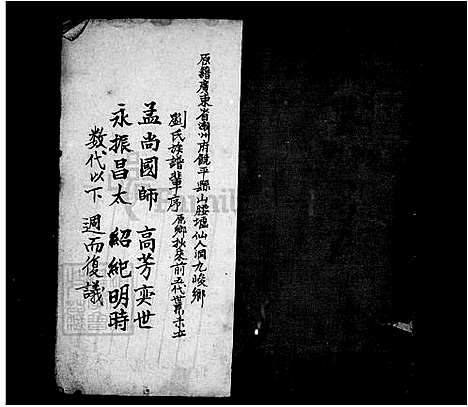 原籍廣東省潮州府饒平縣山腰墟仙人洞九峻鄉
劉氏族譜輩序 原鄉抄來前五代世系未立
孟尚國師 高芳奕世
永振昌太 紹紀明時
数代以下 週而復議